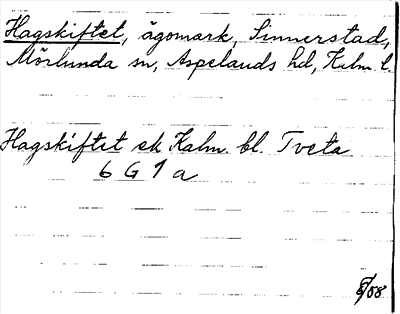 Hagskiftet, ägomark, Sinnerstad,
Mörlunda sn, Aspelands hd, Kalm. l.
Hagskiftet ek Kalm. bl. Tveta
6 G 1 a
/58